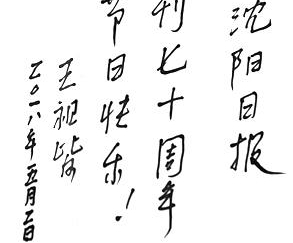 沈阳日报
刊七十周年
节日快乐！
王祖皆
二〇一八年五月二日